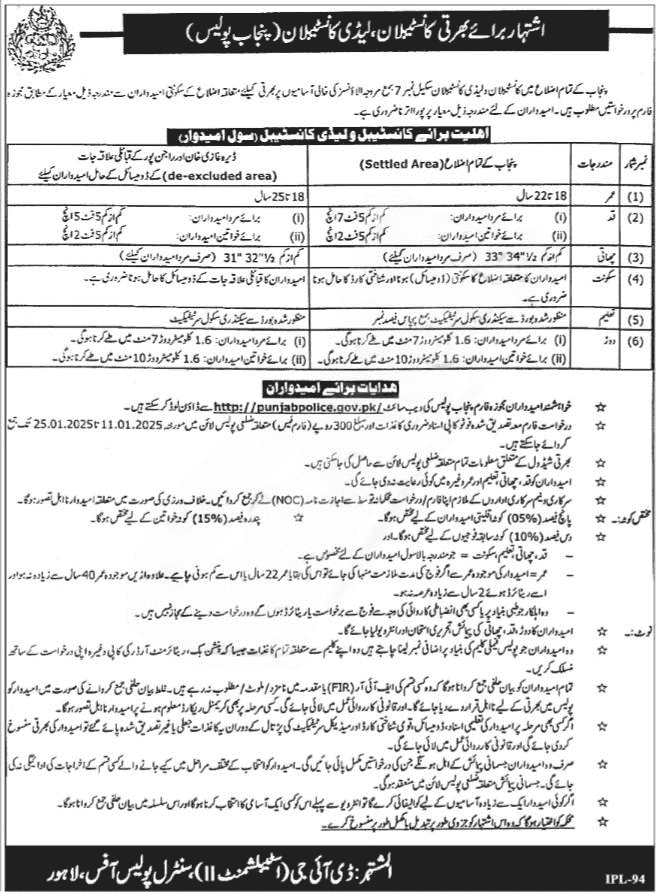 اشتہار برائے بھرتی کانسٹیبلان، لیڈی کانسٹیبلان (پنجاب پولیس)
پنجاب کے تمام اضلاع میں کانسٹیبلان و لیڈی کانسٹیبلان سکیل نمبر 7 بمع مروجہ الاؤنسز کی خالی آسامیوں پر بھرتی کیلئے متعلقہ اضلاع کے سکونتی امیدواران سے مندرجہ ذیل معیار کے مطابق مجوزہ
فارم پر درخواستیں مطلوب ہیں۔ امیدواران کے لئے مندرجہ ذیل معیار پر پورا اترنا ضروری ہے۔
اہلیت برائے کانسٹیبل و لیڈی کانسٹیبل (سول امیدوار)
نمبر شمار مندرجات پنجاب کے تمام اضلاع (Settled Area) ڈیرہ غازی خان اور راجن پور کے قبائلی علاقہ جات
(de-excluded area) کے ڈومیسائل کے حامل امیدواران کیلئے
(1) عمر 18 تا 22 سال 18 تا 25 سال
(2) قد (i) برائے مرد امیدواران: کم از کم 5 فٹ 7 انچ (i) برائے مرد امیدواران: کم از کم 5 فٹ 5 انچ
(ii) برائے خواتین امیدواران: کم از کم 5 فٹ 2 انچ (ii) برائے خواتین امیدواران: کم از کم 5 فٹ 2 انچ
(3) چھاتی کم از کم 33" 34½" (صرف مرد امیدواران کیلئے) کم از کم 31" 32½" (صرف مرد امیدواران کیلئے)
(4) سکونت امیدواران کا متعلقہ اضلاع کا سکونتی (ڈومیسائل) ہونا اور شناختی کارڈ کا حامل ہونا امیدواران کا قبائلی علاقہ جات کے ڈومیسائل کا حامل ہونا ضروری ہے۔
ضروری ہے۔
(5) تعلیم منظور شدہ بورڈ سے سیکنڈری سکول سرٹیفکیٹ بمع پچاس فیصد نمبر منظور شدہ بورڈ سے سیکنڈری سکول سرٹیفکیٹ
(6) دوڑ (i) برائے مرد امیدواران: 1.6 کلومیٹر دوڑ 7 منٹ میں طے کرنا ہوگی۔ (i) برائے مرد امیدواران: 1.6 کلومیٹر دوڑ 7 منٹ میں طے کرنا ہوگی۔
(ii) برائے خواتین امیدواران: 1.6 کلومیٹر دوڑ 10 منٹ میں طے کرنا ہوگی۔ (ii) برائے خواتین امیدواران: 1.6 کلومیٹر دوڑ 10 منٹ میں طے کرنا ہوگی۔
ہدایات برائے امیدواران
☆ خواہشمند امیدواران مجوزہ فارم پنجاب پولیس کی ویب سائٹ http://punjabpolice.gov.pk/ سے ڈاؤن لوڈ کر سکتے ہیں۔
☆ درخواست فارم معہ تصدیق شدہ فوٹو کاپی اسناد ضروری کاغذات اور مبلغ 300 روپے (فارم فیس) متعلقہ ضلعی پولیس لائن میں مورخہ 11.01.2025 تا 25.01.2025 تک جمع
کروائے جا سکتے ہیں۔
☆ بھرتی شیڈول کے متعلق معلومات تمام متعلقہ ضلعی پولیس لائن سے حاصل کی جا سکتی ہیں۔
☆ امیدواران کو قد، چھاتی، تعلیم اور عمر وغیرہ میں کوئی رعایت نہ دی جائے گی۔
☆ سرکاری و نیم سرکاری اداروں کے ملازم اپنا فارم / درخواست محکمانہ توسط سے اجازت نامہ (NOC) لے کر جمع کروائیں۔ خلاف ورزی کی صورت میں متعلقہ امیدوار نااہل تصور ہوگا۔
مختص کوٹہ:۔ ☆ پانچ فیصد (05%) کوٹہ اقلیتی امیدواران کے لئے مختص ہوگا۔ ☆ پندرہ فیصد (15%) کوٹہ خواتین کے لیے مختص ہوگا۔
☆ دس فیصد (10%) کوٹہ سابقہ فوجیوں کے لیے مختص ہوگا۔ اور
– قد، چھاتی، تعلیم، سکونت = جو مندرجہ بالا سول امیدواران کے لئے مخصوص ہے۔
– عمر = امیدوار کی موجودہ عمر سے اگر فوج کی مدت ملازمت منہا کی جائے تو اس کی بقایا عمر 22 سال یا اس سے کم ہونی چاہیے۔ علاوہ ازیں موجودہ عمر 40 سال سے زیادہ نہ ہو اور
اسے ریٹائرڈ ہوئے 2 سال سے زیادہ عرصہ نہ ہو۔
– وہ اہلکار جو طبی بنیاد پر یا کسی بھی انضباطی کاروائی کی وجہ سے فوج سے برخاست یا ریٹائرڈ ہوں گے وہ درخواست دینے کے مجاز نہیں ہیں۔
نوٹ:۔ ☆ امیدواران کا دوڑ، قد، چھاتی کی پیمائش، تحریری امتحان اور انٹرویو لیا جائے گا۔
☆ وہ امیدواران جو پولیس فیملی کلیم کی بنیاد پر اضافی نمبر لینا چاہتے ہیں وہ اپنے کلیم سے متعلقہ تمام کاغذات جیسا کہ پنشن بک، ریٹائرمنٹ آرڈر کی کاپی وغیرہ اپنی درخواست کے ساتھ
منسلک کریں۔
☆ تمام امیدواران کو بیان حلفی جمع کروانا ہوگا کہ وہ کسی قسم کی ایف آئی آر (FIR) یا مقدمہ میں نامزد / ملوث / مطلوب نہ رہے ہیں۔ غلط بیان حلفی جمع کروانے کی صورت میں امیدوار کو
پولیس میں بھرتی کے لیے نااہل قرار دے دیا جائے گا۔ اور قانونی کاروائی عمل میں لائی جائے گی۔ کسی مرحلہ پر بھی کریمنل ریکارڈ معلوم ہونے پر امیدوار نااہل تصور ہوگا۔
☆ اگر کسی بھی مرحلہ پر امیدوار کی تعلیمی اسناد، ڈومیسائل، قومی شناختی کارڈ اور میڈیکل سرٹیفکیٹ کی پڑتال کے دوران یہ کاغذات جعلی یا غیر تصدیق شدہ پائے گئے تو امیدوار کی بھرتی منسوخ
کر دی جائے گی اور قانونی کاروائی عمل میں لائی جائے گی۔
☆ صرف وہ امیدواران جسمانی پیمائش کے اہل ہونگے جن کی درخواستیں مکمل پائی جائیں گی۔ امیدوار کو انتخاب کے مختلف مراحل میں کیے جانے والے کسی قسم کے اخراجات کی ادائیگی نہ کی
جائے گی۔ جسمانی پیمائش متعلقہ ضلعی پولیس لائن میں منعقد ہوگی۔
☆ اگر کوئی امیدوار ایک سے زیادہ آسامیوں کے لیے کوالیفائی کرے گا تو انٹرویو سے پہلے اس کو کسی ایک آسامی کا انتخاب کرنا ہوگا اور اس سلسلہ میں بیان حلفی جمع کروانا ہوگا۔
☆ محکمہ کو اختیار ہوگا کہ وہ اس اشتہار کو جزوی طور پر تبدیل یا مکمل طور پر منسوخ کرے۔
المشتہر: ڈی آئی جی (اسٹیبلشمنٹ II) سنٹرل پولیس آفس، لاہور
IPL-94